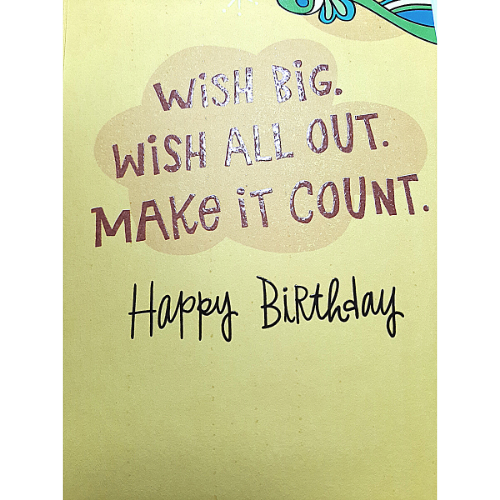 WiSH BiG.
WiSH ALL OUT.
MAKe iT COUNT.
Happy BiRthday